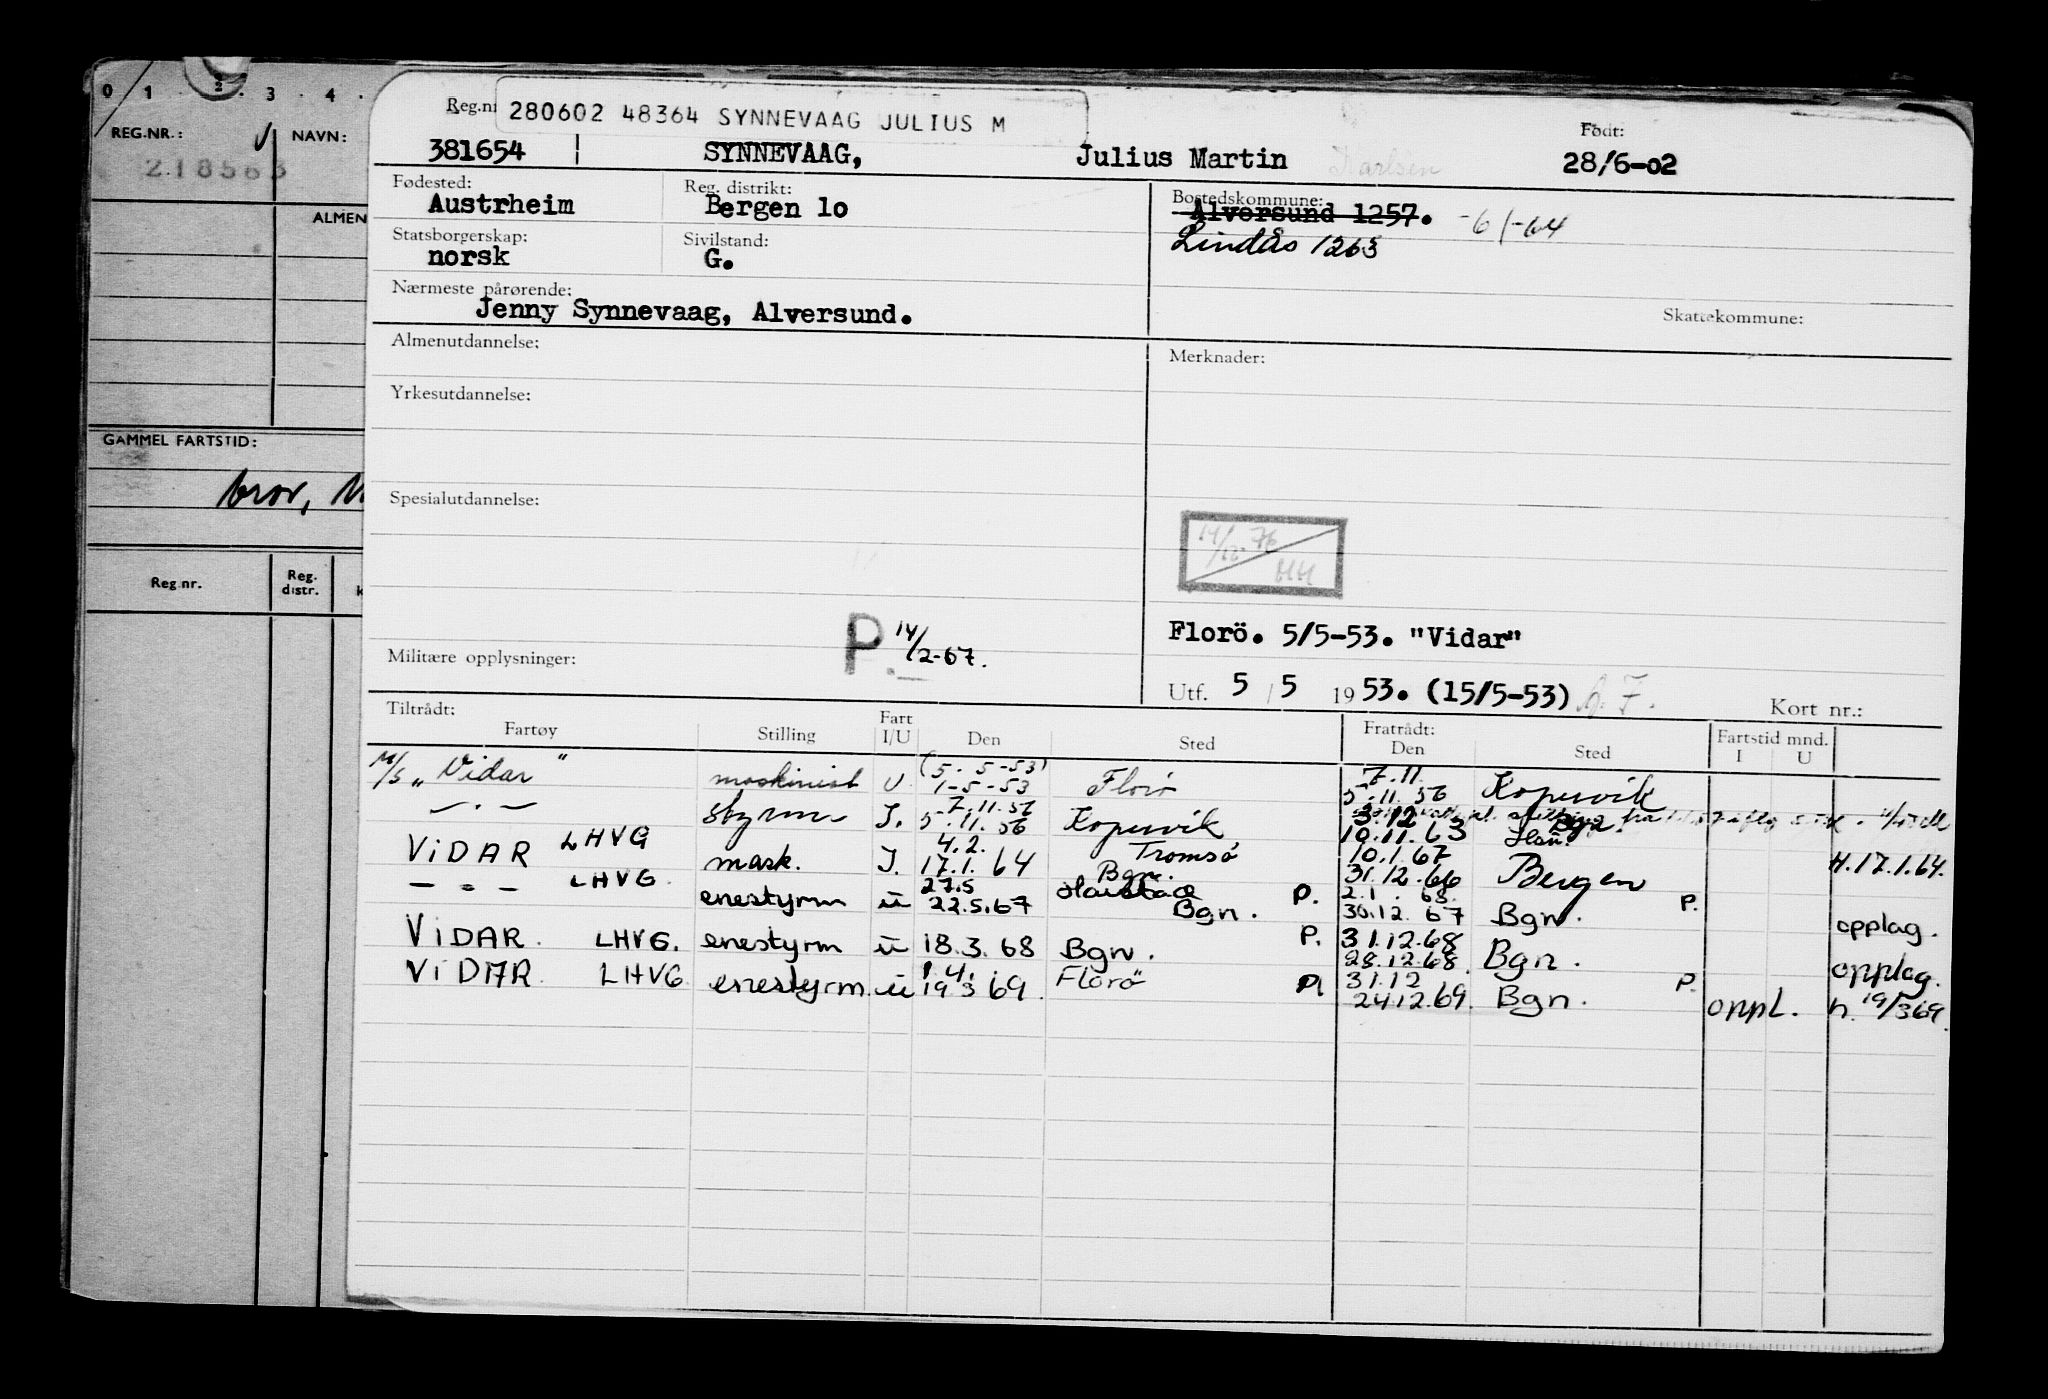 0 1 2 3 4
REG.NR.: NAVN:
218563
ALMEN
GAMMEL FARTSTID:
bror,
Reg.nr. Reg. distr. k
Reg.nr 280602 48364 SYNNEVAAG JULIUS M Født:
381654 SYNNEVAAG, Julius Martin Karlsen 28/6-02
Fødested: Reg. distrikt: Bostedskommune:
Austrheim Bergen lo Alversund 1257. -6/-64
Statsborgerskap: Sivilstand: Lindås 1263
norsk G.
Nærmeste pårørende:
Jenny Synnevaag, Alversund. Skattekommune:
Almenutdannelse: Merknader:
Yrkesutdannelse:
Spesialutdannelse:
14/12-76 HH
P. 14/2-67.
Florö. 5/5-53. "Vidar"
Militære opplysninger:
Utf. 5 / 5 1953. (15/5-53) Kort nr.:
Tiltrådt: Fratrådt: Fartstid mnd.
Fartøy Stilling Fart I/U Den Sted Den Sted I U
(5.-5-53) 7.11.
M/S "Vidar" maskinist U 1-5-53 Florø 5.11.56 Kopervik
7.11.56 3.12 Bgn.
—"— styrm I. 5.11.56 Kopervik 10.11.63
4.2. Tromsø 10.1.67
VIDAR LHVG mask. I. 17.1.64 Bgn. 31.12.66 Bergen H.17.1.64.
27.5 P. 2.1.68. P.
—"— LHVG enestyrm u 22.5.67 Bgn. 30.12.67 Bgn. opplag.
P. 31.12.68
VIDAR. LHVG. enestyrm u 18.3.68 Bgn. 28.12.68. Bgn. opplag.
1.4. P. 31.12 P.
VIDAR. LHVG enestyrm. u 19.3.69. Florö 24.12.69. Bgn. oppl. h. 19/369.